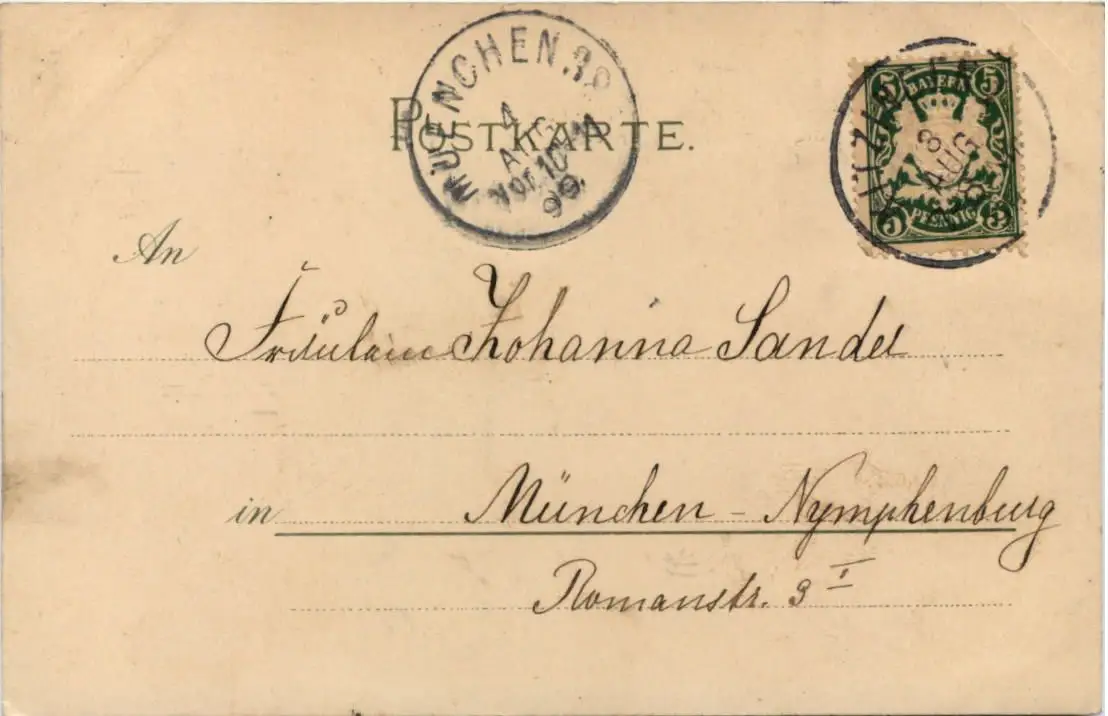 MUENCHEN.38
4
AUG
Vor.10-11
99.
POSTKARTE.
5 BAYERN 5
5 PFENNIG 5
KITZINGEN
3
AUG
An
Fräulein Johanna Sandel
in München - Nymphenburg
Romanstr. 3 I